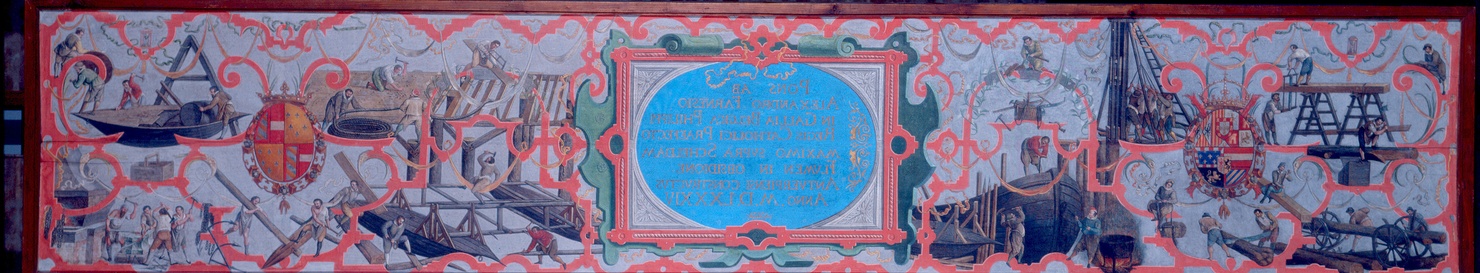 PONS AB
ALEXANDRO FARNESIO
IN GALLIA BELGICA PHILIPPI
REGIS CATHOLICI PRAEFECTO
MAXIMO SUPRA SCHELDAM
FLUMEN IN OBSIDIONE
CONSTRUCTUS
ANNO M.D.LXXXIV